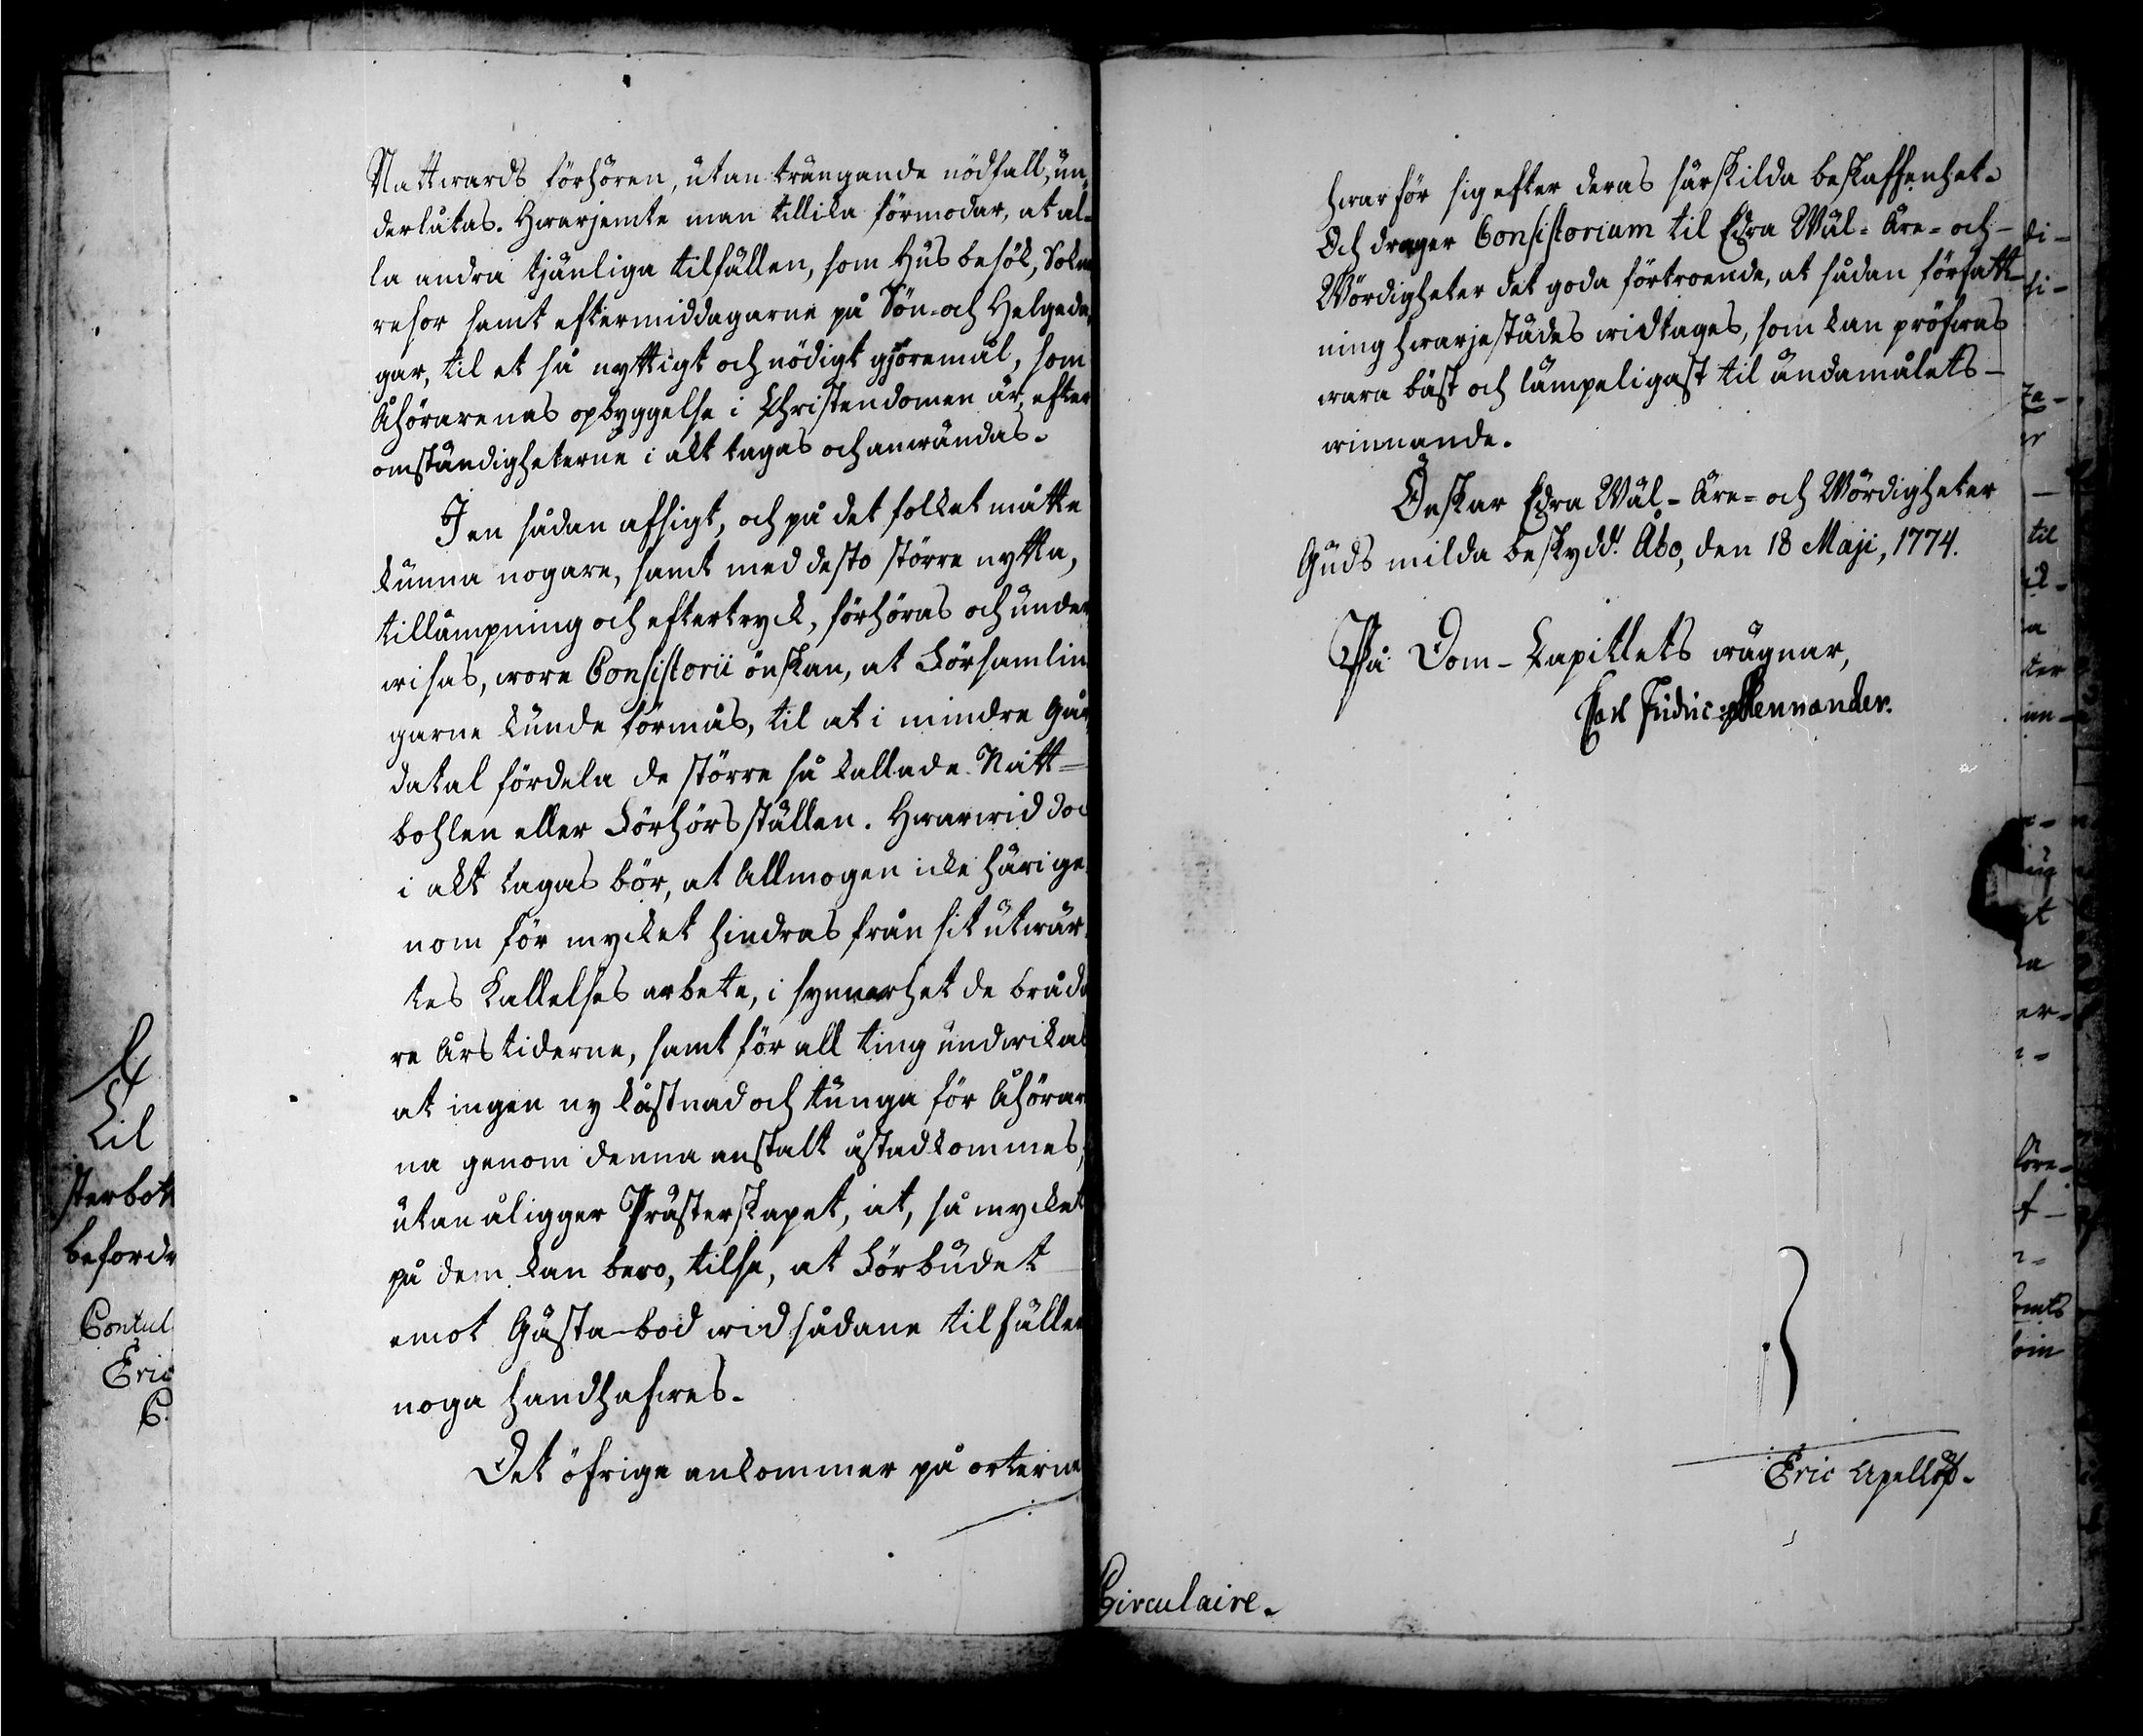 Nattwards förhören, utan trängande nödfall, un-
derlåtas. Hwarjemte man tillika förmodar, at al-
la andra tjänliga tilfällen, som Husbesök, Sokne
resor samt eftermiddagarne på Sön- och Helgeda-
gar, til et så nyttigt och nödigt gjöremål, som
Åhörarenas opbyggelse i Christendomen är, efter
omständigheterne i akt tagas och anwändas.
I en sådan afsigt, och på det folket måtte
kunna nogare, samt med desto större nytta,
tillämpning och eftertryck, förhöras och under
wisas, wore Consistorii önskan, at Församlin
garne kunde förmås, til at i mindre Går
datal fördela de större så kallade Natt-
bohlen eller Förhörsställen. Hwarwid doc
i akt tagas bör, at Allmogen icke härige
nom för mycket hindras från sit utwär
tes Kallelses arbete, i synnerhet de bråda
re Årstiderne, samt för all ting undwikas
at ingen ny kåstnad och tunga för Åhörar
na genom denna anstalt åstadkommes,
utan åligger Prästerskapet, at, så mycket
på dem kan bero, tilse, at Förbudet
emot Gästa-bod wid sådane tilfällen
noga handhafwes.
Det öfriga ankommer på orterne
hwar för sig efter deras särskilda beskaffenhet.
Och drager Consistorium til Edra Wäl-Äre- och-
Wördigheter det goda förtroende, at sådan författ-
ning hwarjestädes widtages, som kan pröfwas
wara bäst och lämpeligast til ändamålets-
winnande.
Önskar Edra Wäl-Äre- och Wördigheter
Guds milda beskydd. Åbo, den 18 Maji, 1774.
På Dom-Capitlets wägnar,
Carl Fridric Mennander.
Eric Apellöf.
Circulaire.
Til
sterbot
befordr
Contul
Eric
C.